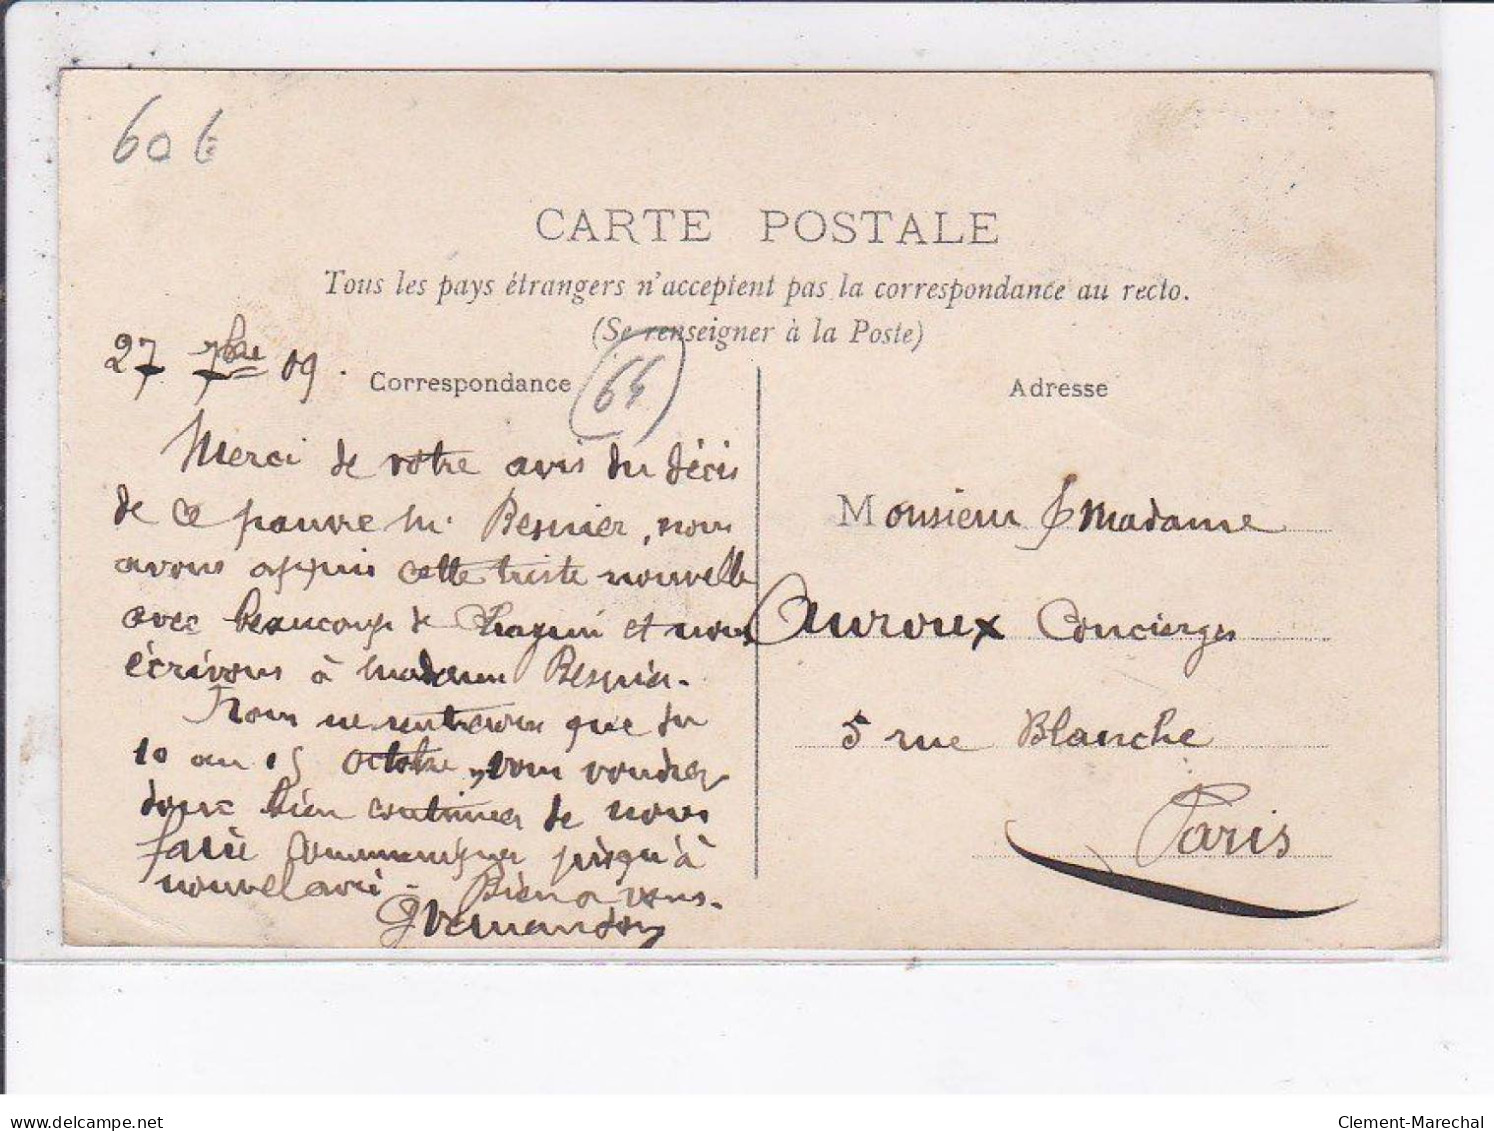 606
CARTE POSTALE
Tous les pays étrangers n'acceptent pas la correspondance au recto.
(Se renseigner à la Poste)
27 7bre 09.
Correspondance
64
Merci de votre avis du décès
de ce pauvre M. Besnier, nous
avons appris cette triste nouvelle
avec beaucoup de chagrin et nous
écrivons à madame Besnier.
Nous ne rentrerons que du
10 au 15 octobre, vous voudrez
donc bien continuer de nous
faire communiquer jusqu'à
nouvel avis. Bien a vous.
Adresse
Monsieur & Madame
Auroux Concierges
5 rue Blanche
Paris
delcampe.net
Clement-Marechal